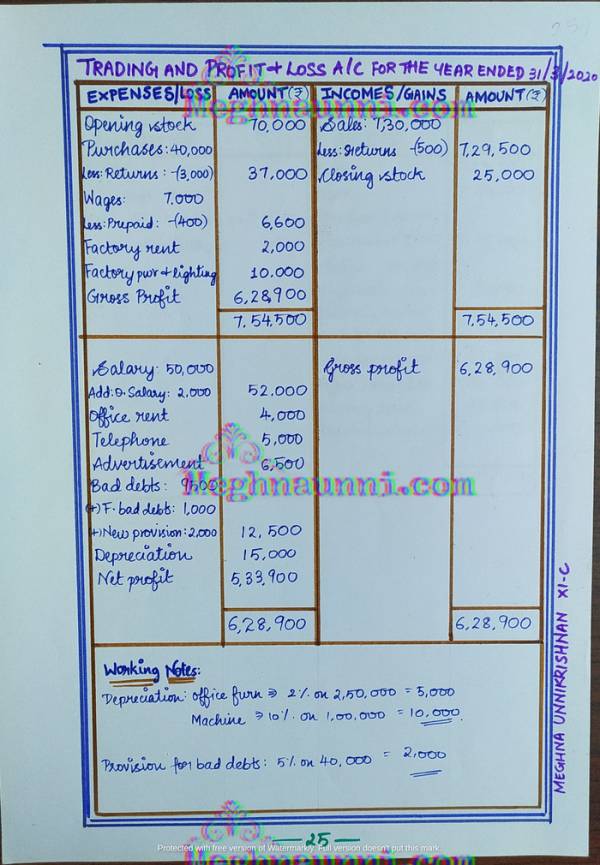 TRADING AND PROFIT & LOSS A/C FOR THE YEAR ENDED 31/3/2020
EXPENSES/LOSS AMOUNT(₹) INCOMES/GAINS AMOUNT(₹)
Opening stock 70,000 Sales: 7,30,000
Purchases: 40,000 Less: Returns -(500) 7,29,500
Less: Returns: -(3,000) 37,000 Closing stock 25,000
Wages: 7.000
Less: Prepaid: -(400) 6,600
Factory rent 2,000
Factory pwr & lighting 10.000
Gross Profit 6,28,900
7,54,500 7,54,500
Salary: 50,000 Gross profit 6,28,900
Add: O. Salary: 2,000 52.000
Office rent 4,000
Telephone 5,000
Advertisement 6,500
Meghnaunni.com
Bad debts: 9500
(+) F. bad debts: 1,000
(+) New provision: 2,000 12,500
Depreciation 15,000
Net profit 5,33,900
6,28,900 6,28,900
Working Notes:
Depreciation: office furn ⇒ 2% on 2,50,000 = 5,000
Machine ⇒ 10% on 1,00,000 = 10,000.
Provision for bad debts: 5% on 40,000 = 2,000
MEGHNA UNNIKRISHNAN XI-C
— 25 —
Protected with free version of Watermarkly. Full version doesn't put this mark.
Meghnaunni.com